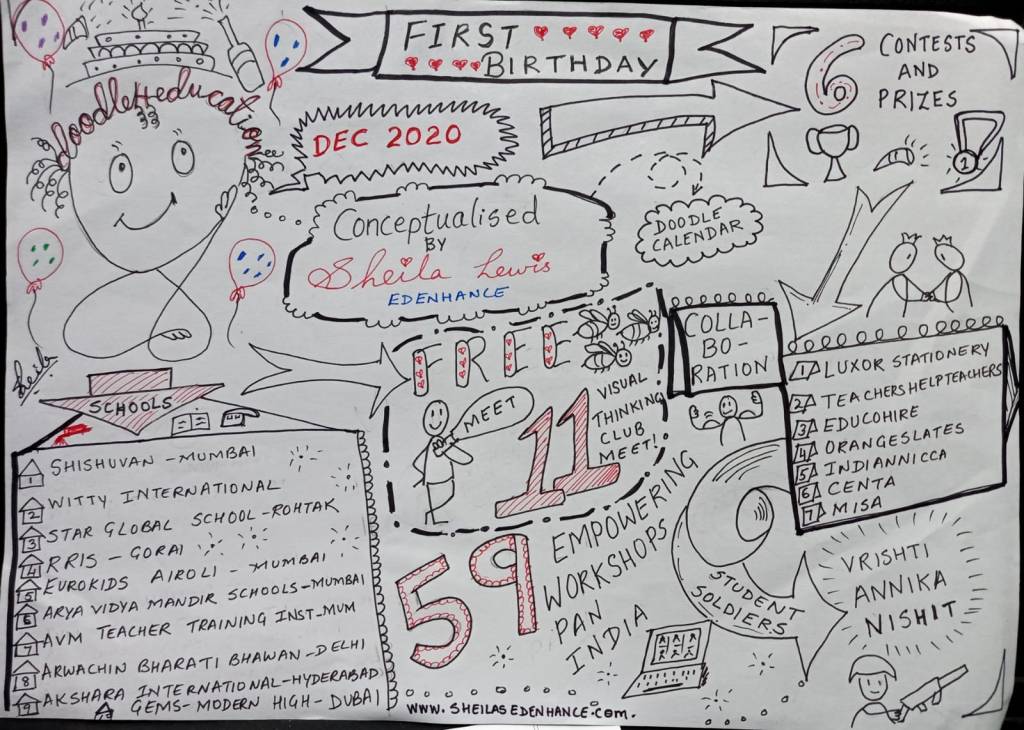 FIRST
BIRTHDAY
doodle4education
DEC 2020
6 CONTESTS
AND
PRIZES
1
Conceptualised
BY
Sheila Lewis
EDENHANCE
DOODLE
CALENDAR
Sheila
SCHOOLS
1 SHISHUVAN - MUMBAI
2 WITTY INTERNATIONAL
3 STAR GLOBAL SCHOOL - ROHTAK
4 RRIS - GORAI
5 EUROKIDS AIROLI - MUMBAI
6 ARYA VIDYA MANDIR SCHOOLS - MUMBAI
7 AVM TEACHER TRAINING INST - MUM
8 ARWACHIN BHARATI BHAWAN - DELHI
9 AKSHARA INTERNATIONAL - HYDERABAD
10 GEMS - MODERN HIGH - DUBAI
FREE
MEET
11
VISUAL
THINKING
CLUB
MEET!
COLLA-
BO-
RATION
1 LUXOR STATIONERY
2 TEACHERSHELPTEACHERS
3 EDUCOHIRE
4 ORANGESLATES
5 INDIANNICCA
6 CENTA
7 MISA
59
EMPOWERING
WORKSHOPS
PAN
INDIA
STUDENT
SOLDIERS
VRISHTI
ANNIKA
NISHIT
WWW.SHEILASEDENHANCE.COM.